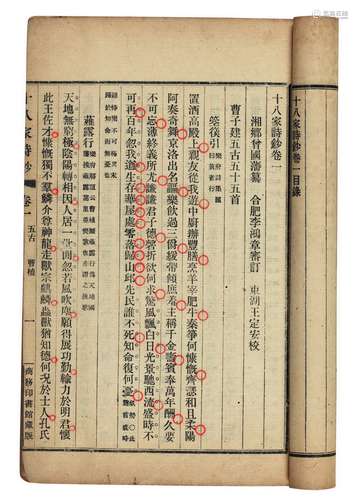 十八家詩鈔卷一目錄
十八家詩鈔卷一
湘鄉曾國藩纂 合肥李鴻章審訂 東湖王定安校
曹子建五古五十五首
箜篌引
置酒高殿上親友從我遊中廚辦豐膳烹羊宰肥牛秦箏何慷慨齊瑟和且柔陽
阿奏奇舞京洛出名謳樂飲過三爵緩帶傾庶羞主稱千金壽賓奉萬年酬久要
不可忘薄終義所尤謙謙君子德磬折欲何求驚風飄白日光景馳西流盛時不
可再百年忽我遒生存華屋處零落歸山邱先民誰不死知命復何憂
薤露行
天地無窮極陰陽轉相因人居一世間忽若風吹塵願得展功勤輸力於明君懷
此王佐才慷慨獨不羣鱗介尊神龍走獸宗麒麟蟲獸猶知德何況於士人孔氏
十八家詩鈔 卷一 五古 曹植 一 商務印書館藏版